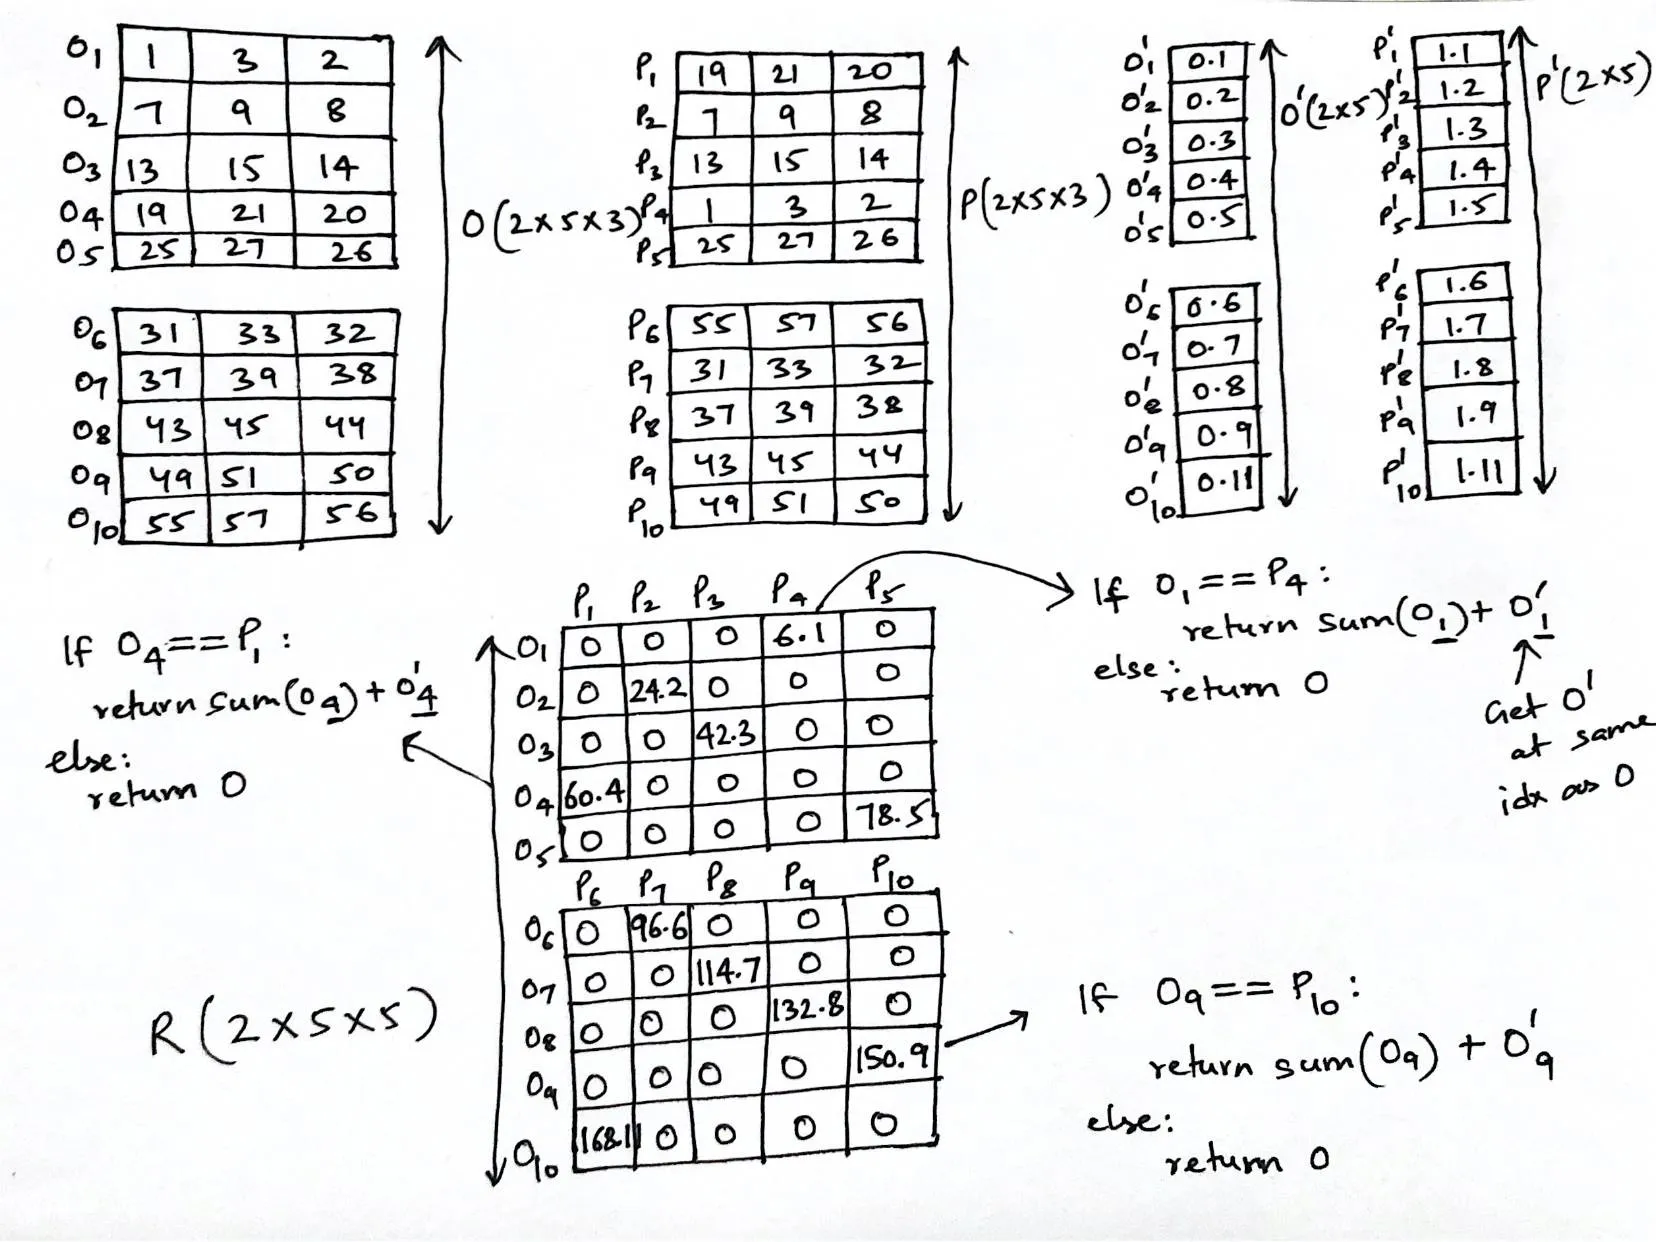 O1 1 3 2
O2 7 9 8
O3 13 15 14
O4 19 21 20
O5 25 27 26
O6 31 33 32
O7 37 39 38
O8 43 45 44
O9 49 51 50
O10 55 57 56
O(2×5×3)
P1 19 21 20
P2 7 9 8
P3 13 15 14
P4 1 3 2
P5 25 27 26
P6 55 57 56
P7 31 33 32
P8 37 39 38
P9 43 45 44
P10 49 51 50
P(2×5×3)
O'1 0.1
O'2 0.2
O'3 0.3
O'4 0.4
O'5 0.5
O'6 0.6
O'7 0.7
O'8 0.8
O'9 0.9
O'10 0.11
O'(2×5)
P'1 1.1
P'2 1.2
P'3 1.3
P'4 1.4
P'5 1.5
P'6 1.6
P'7 1.7
P'8 1.8
P'9 1.9
P'10 1.11
P'(2×5)
If O4==P1:
return sum(O4)+O'4
else:
return 0
P1 P2 P3 P4 P5
O1 0 0 0 6.1 0
O2 0 24.2 0 0 0
O3 0 0 42.3 0 0
O4 60.4 0 0 0 0
O5 0 0 0 0 78.5
P6 P7 P8 P9 P10
O6 0 96.6 0 0 0
O7 0 0 114.7 0 0
O8 0 0 0 132.8 0
O9 0 0 0 0 150.9
O10 168.11 0 0 0 0
R(2×5×5)
If O1==P4:
return sum(O1)+O'1
else:
return 0
Get O'
at same
idx as O
If O9==P10:
return sum(O9)+O'9
else:
return 0